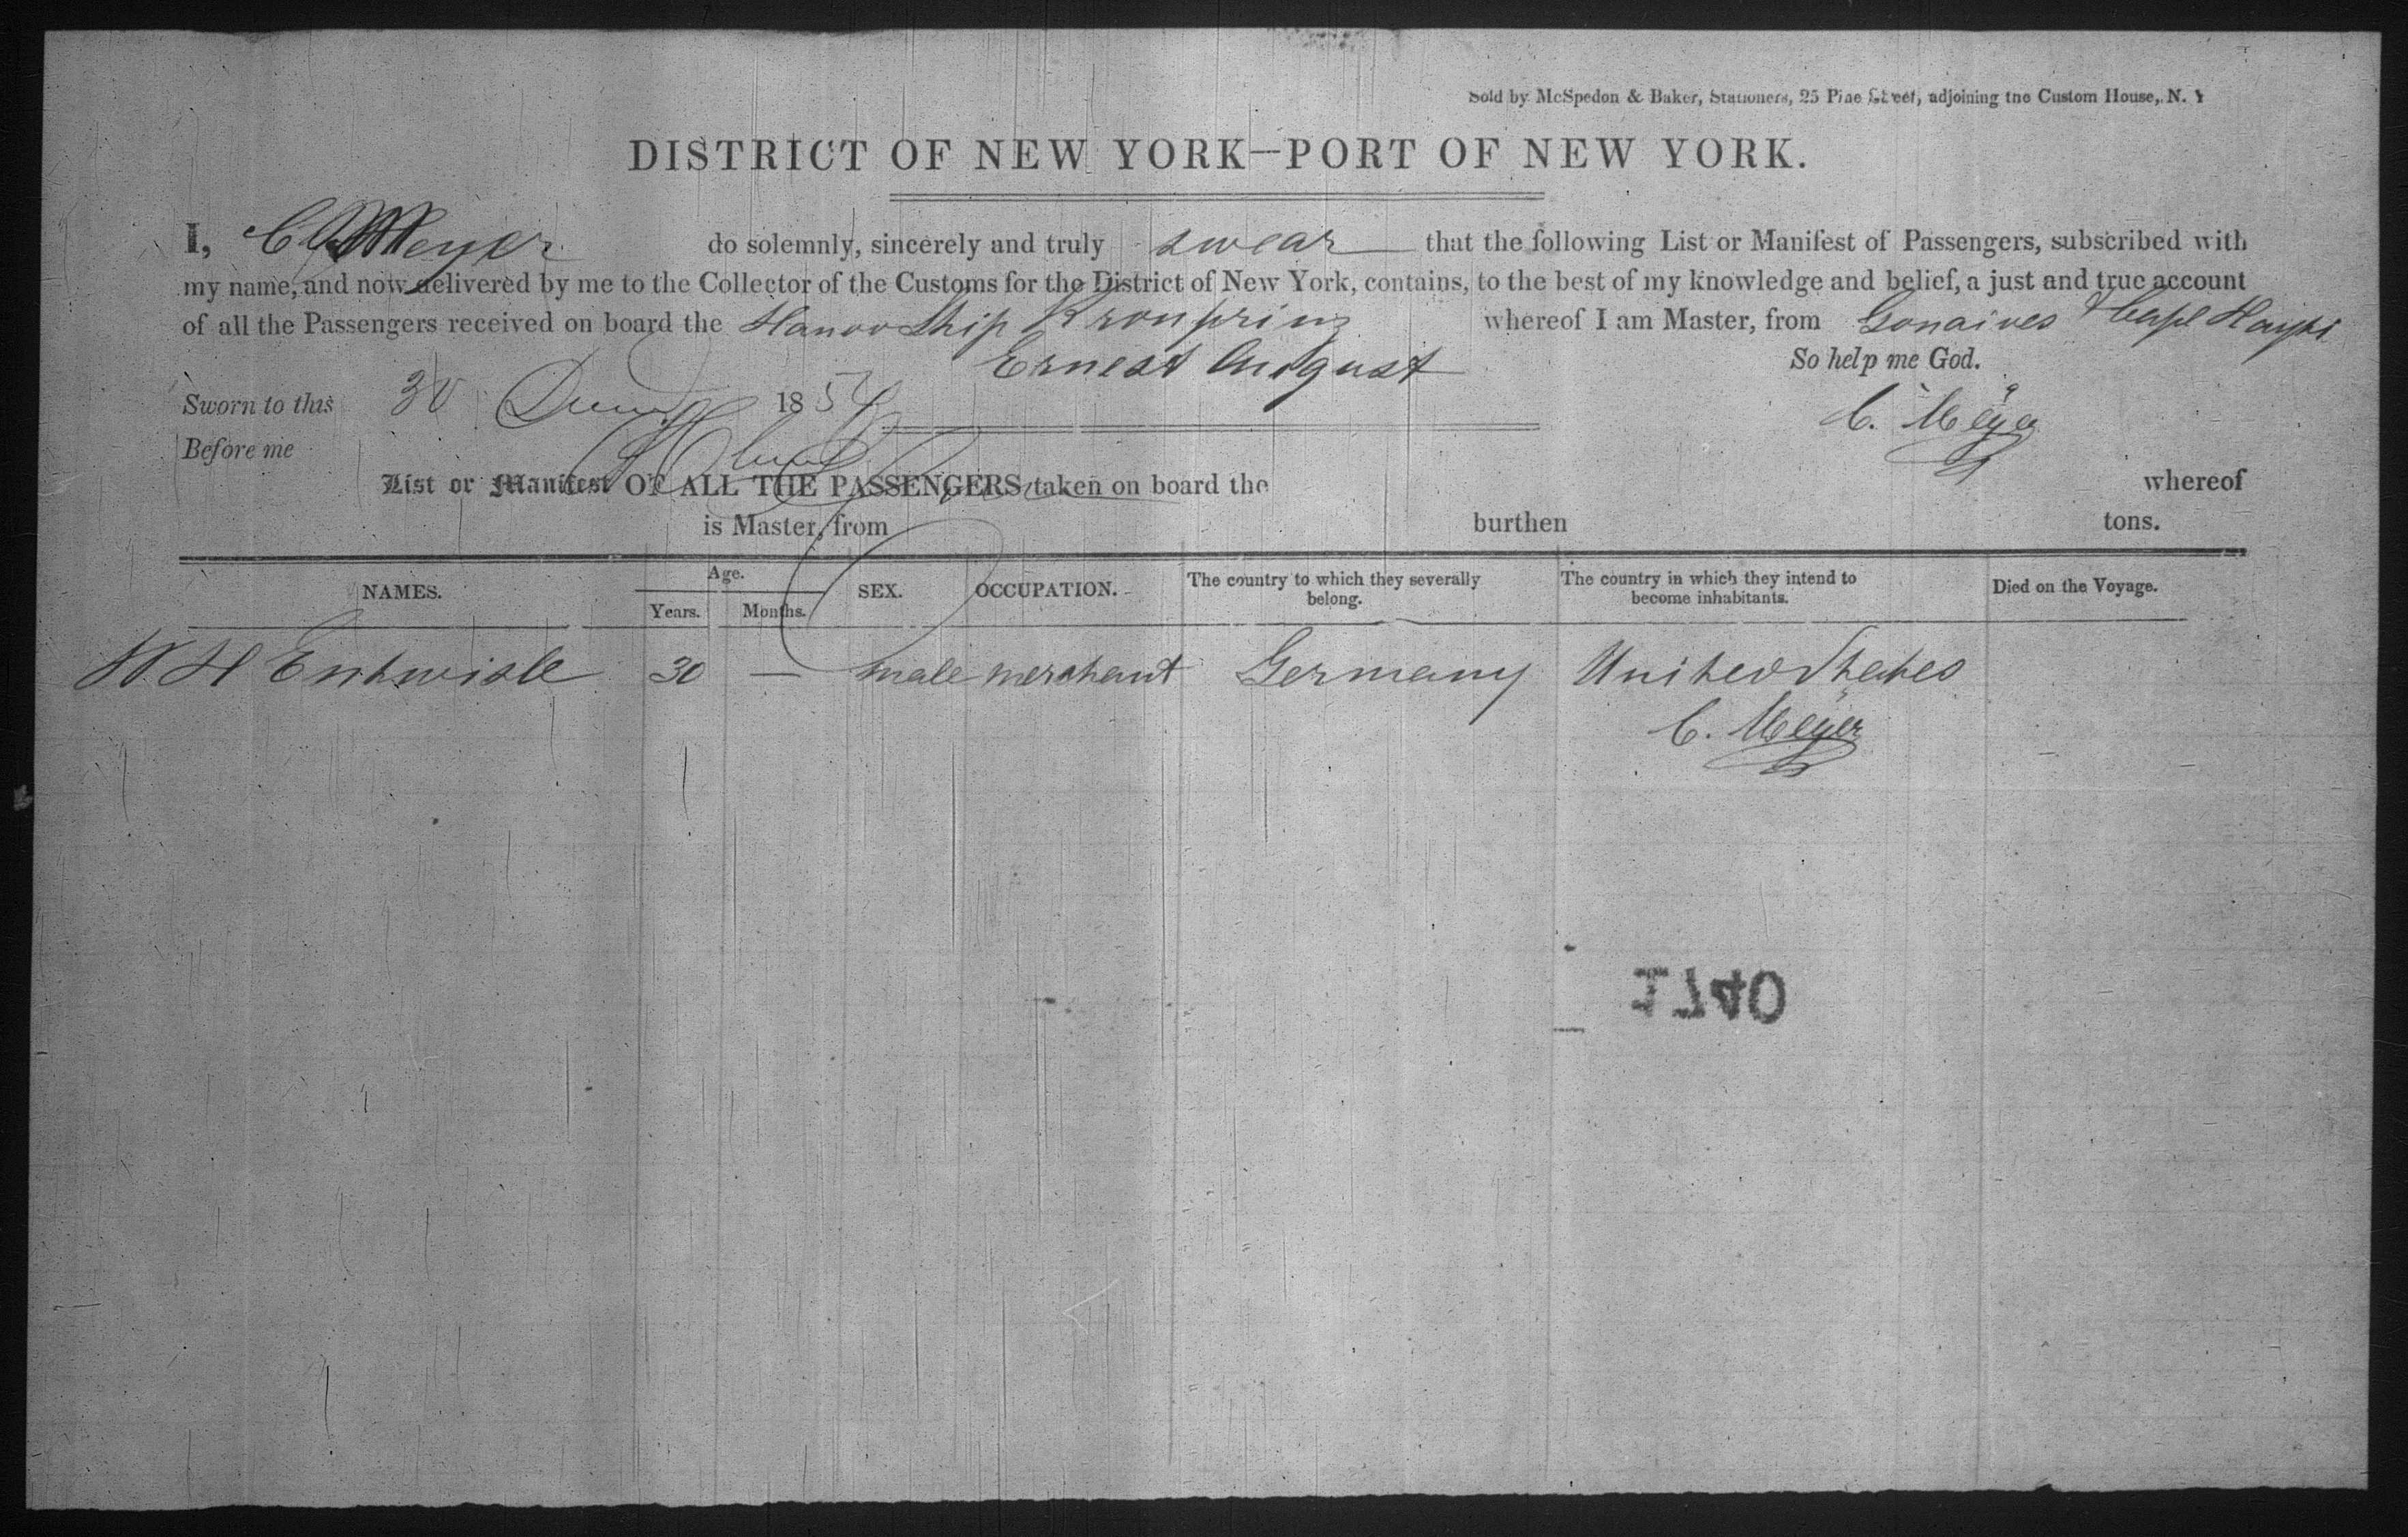 Sold by McSpedon & Baker, Stationers, 25 Pine Street, adjoining the Custom House, N. Y
DISTRICT OF NEW YORK—PORT OF NEW YORK.
I, C Meyer do solemnly, sincerely and truly swear that the following List or Manifest of Passengers, subscribed with
my name, and now delivered by me to the Collector of the Customs for the District of New York, contains, to the best of my knowledge and belief, a just and true account
of all the Passengers received on board the Hanov Ship Kronprinz whereof I am Master, from Gonaives & Cape Hayti
Ernest August So help me God.
Sworn to this 30 1854
C. Meyer
Before me
List or Manifest OF ALL THE PASSENGERS taken on board the whereof
is Master, from burthen tons.
NAMES. Age. Years. Months. SEX. OCCUPATION. The country to which they severally belong. The country in which they intend to become inhabitants. Died on the Voyage.
W. H Entwisle 30 — male merchant Germany United States
C. Meyer
1740